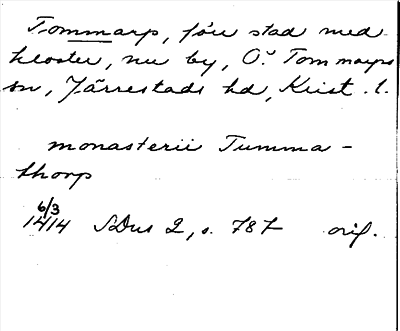 Tommarp, förr stad med
kloster, nu by, Ö. Tommarps
sn, Järrestads hd, Krist. l.
monasterii Tumma-
thorp
6/3
1414 SDns 2, s. 787 orig.